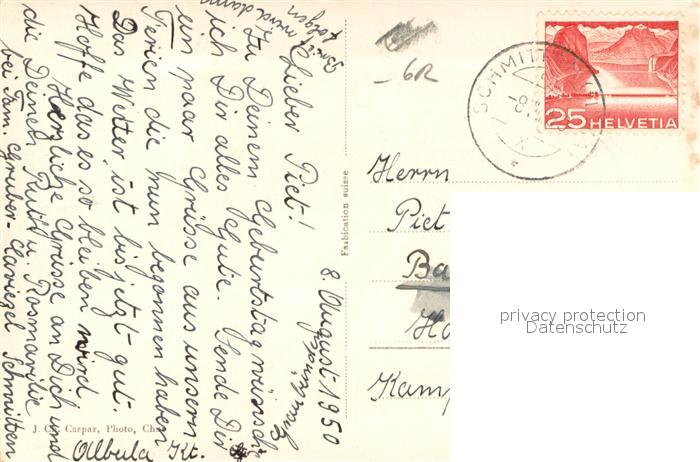 8. August 1950
Lieber Piet!
Zu Deinem Geburtstag wünsch
ich Dir alles Gute. Sende Dir
ein paar Grüsse aus unsern
Ferien die nun begonnen haben
Das Wetter ist bis jetzt gut.
Hoffe das es so bleiben wird
Herzliche Grüsse an Dich und
die Deinen Ruth u. Rosmarilie
bei Fam. Gruber-Caviezel Schmitten
Albula Kt.
folgen
wird dann
J. Caspar, Photo, Chur
Fabrication suisse
6R
SCHMITTEN
25 HELVETIA
Herrn
Piet
Ba
Ho
Kamp
privacy protection
Datenschutz